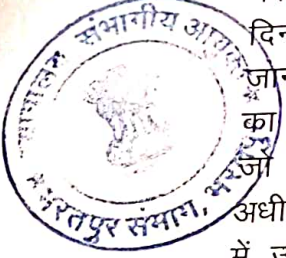 कार्यालय संभागीय आयुक्त
भरतपुर संभाग, भरतपुर
दिन
जान
का
जो
अधी